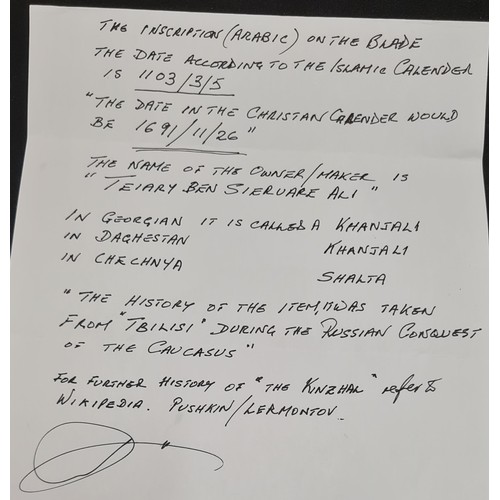 THE INSCRIPTION (ARABIC) ON THE BLADE
THE DATE ACCORDING TO THE ISLAMIC CALENDER
IS 1103/3/5
"THE DATE IN THE CHRISTAN CALENDER WOULD
BE 1691/11/26"
THE NAME OF THE OWNER/MAKER IS
"TEIARY BEN SIERUARE ALI"
IN GEORGIAN IT IS CALLED A KHANJALI
IN DAGHESTAN KHANJALI
IN CHECHNYA SHALTA
"THE HISTORY OF THE ITEM, IT WAS TAKEN
FROM "TBILISI" DURING THE RUSSIAN CONQUEST
OF THE CAUCASUS"
FOR FURTHER HISTORY OF "THE KINZHAL" refer to
WIKIPEDIA. PUSHKIN/LERMONTOV.